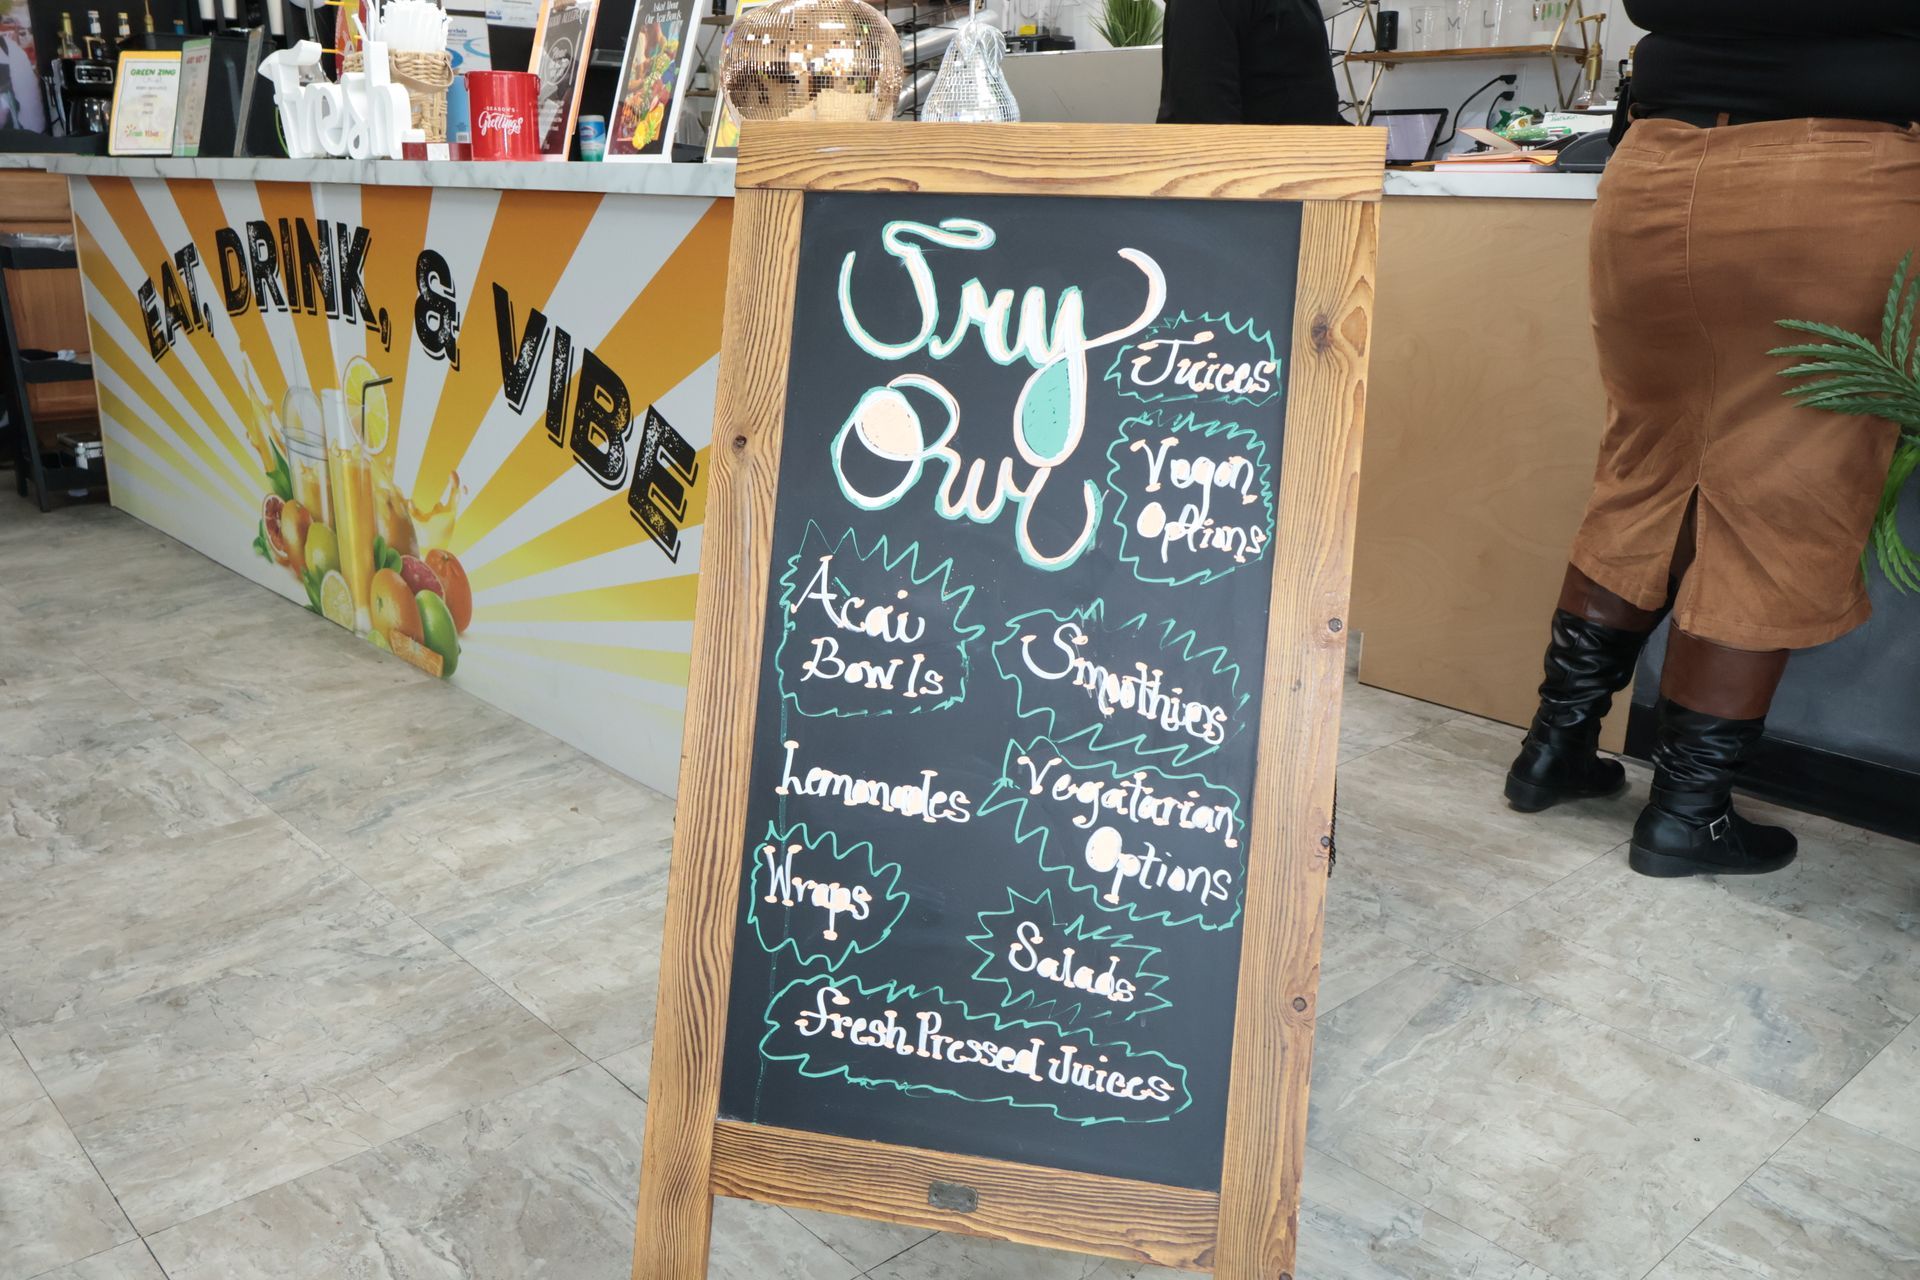 GREEN ZING
fresh
SEASON'S
Greetings
Our Acai Bowls
S M L
EAT, DRINK, & VIBE
Try
Our
Juices
Vegan
Options
Acai
Bowls
Smoothies
Lemonades
Vegatarian
Options
Wraps
Salads
Fresh Pressed Juices